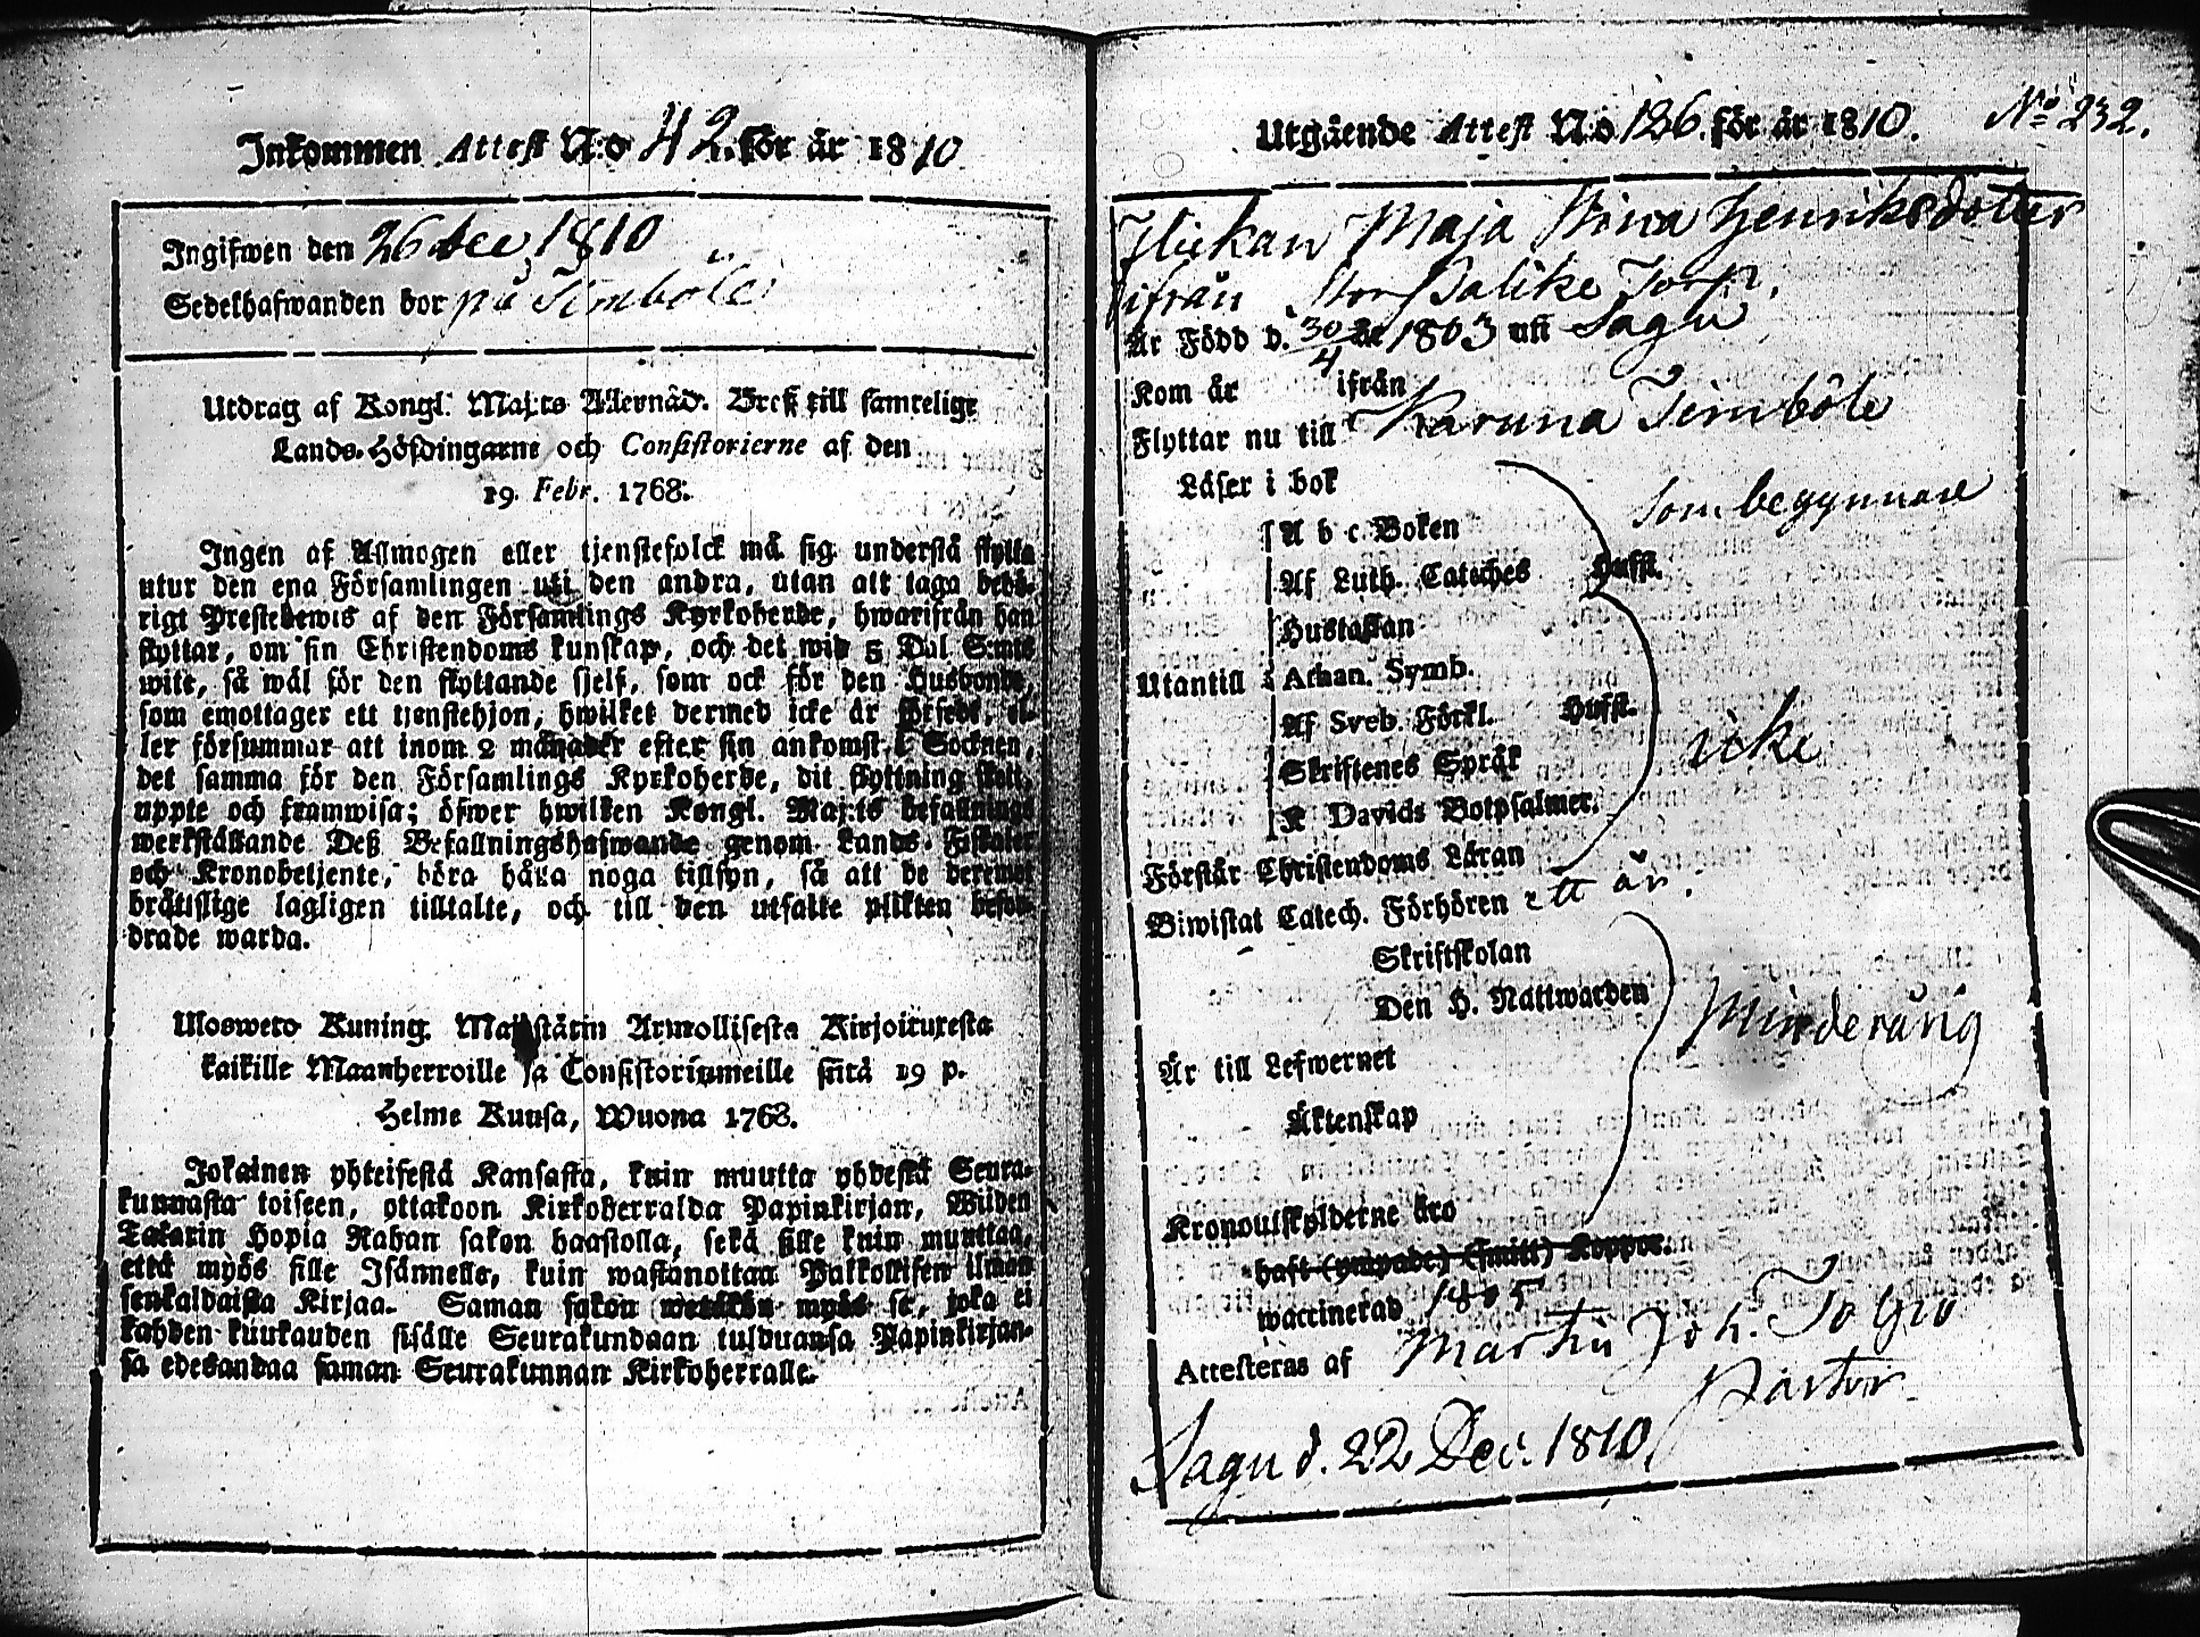 Inkommen Attest N:o 42. för år 1810
Ingifwen den 26 dec 1810
Sedelhafwanden bor på Timböle
Utdrag af Kongl. Maj:ts Allernåd. Bref till samtelige
Lands-Höfdingarne och Consistorierne af den
19. Febr. 1768.
Ingen af Allmogen eller tjenstefolck må sig understå flytta
utur den ena Församlingen uti den andra, utan att taga behö-
rigt Prestebewis af den Församlings Kyrkoherde, hwarifrån han
flyttar, om sin Christendoms kunskap, och det wid 5 Dal S:mts
wite, så wäl för den flyttande sjelf, som ock för den Husbonde,
som emottager ett tjenstehjon, hwilket dermed icke är försedt, el-
ler försummar att inom 2 månader efter sin ankomst i Socknen,
det samma för den Församlings Kyrkoherde, dit flyttning skett,
uppte och framwisa; öfwer hwilken Kongl. Maj:ts befallnings
werkställande Deß Befallningshafwande genom Lands-Fiskaler
och Kronobetjente, böra hålla noga tillsyn, så att de deremot
brättslige lagligen tilltalte, och till den utsatte plikten befor-
drade warda.
Uloswето Kuning. Majestätin Armollisesta Kirjoituxesta
kaikille Maanherroille ja Consistoriumeille siitä 19 p.
Helme Kuusa, Wuona 1768.
Jokainen yhteisestä Kansasta, kuin muutta yhdestä Seura-
kunnasta toiseen, ottakoon Kirkoherralda Papinkirjan, Wiiden
Talarin Hopia Rahan sakon haastolla, sekä sille kuin muuttaa,
että myös sille Isännelle, kuin wastanottaa Palkollisen ilman
senkaldaista Kirjaa. Saman sakon wetäkön myös se, joka ei
kahden kuukauden sisälle Seurakundaan tulduansa Papinkirjan-
sa edesandaa saman Seurakunnan Kirkoherralle.
Utgående Attest N:o 186. för år 1810. No 232.
Flickan Maja Stina Henriksdotter
ifrån Stor Palike Torp.
Är Född d. 30/4 år 1803 uti Sagu
Kom år ifrån
Flyttar nu till Karuna Timböle
Läser i bok som begynnare
A b c Boken
Af Luth. Catches Hufst.
Hustaflan
Utantill Athan. Symb.
Af Sveb. Förkl. Hufst.
icke
Skriftenes Språk
K Davids Botpsalmer.
Förstår Christendoms Läran
Biwistat Catech. Förhören ett år.
Skriftskolan
Den H. Nattwarden
Minderårig
Är till Lefwernet
Äktenskap
Kronoutskylderne äro
haft (ympade) (smitt) Koppor.
waccinerad 1805
Attesteras af Martin Joh. Tolpo
Pastor
Sagu d. 22 Dec. 1810.